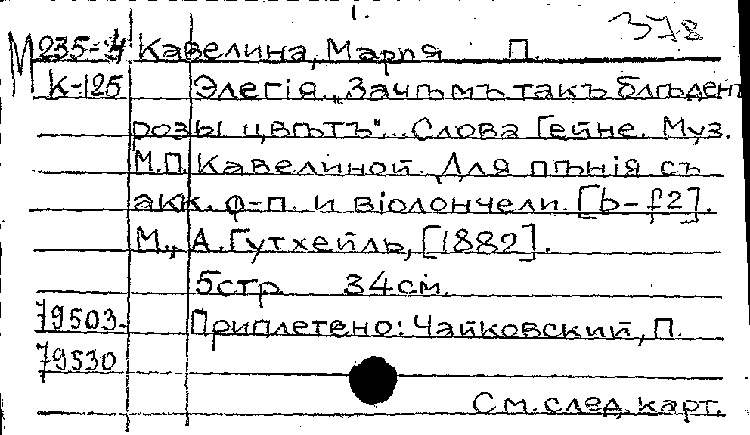 1.
378
М 235-4 Кавелина, Мария П.
К-125 Элегія „Зачѣмъ такъ блѣденъ
розы цвѣтъ"... Слова Гейне. Муз.
М.П. Кавелиной. Для пѣнія съ
акк. ф-п. и віолончели. [b-f2].
М., А. Гутхейль, [1882].
5 стр 34 см.
79503- Приплетено: Чайковский, П.
79530
См. след. карт.